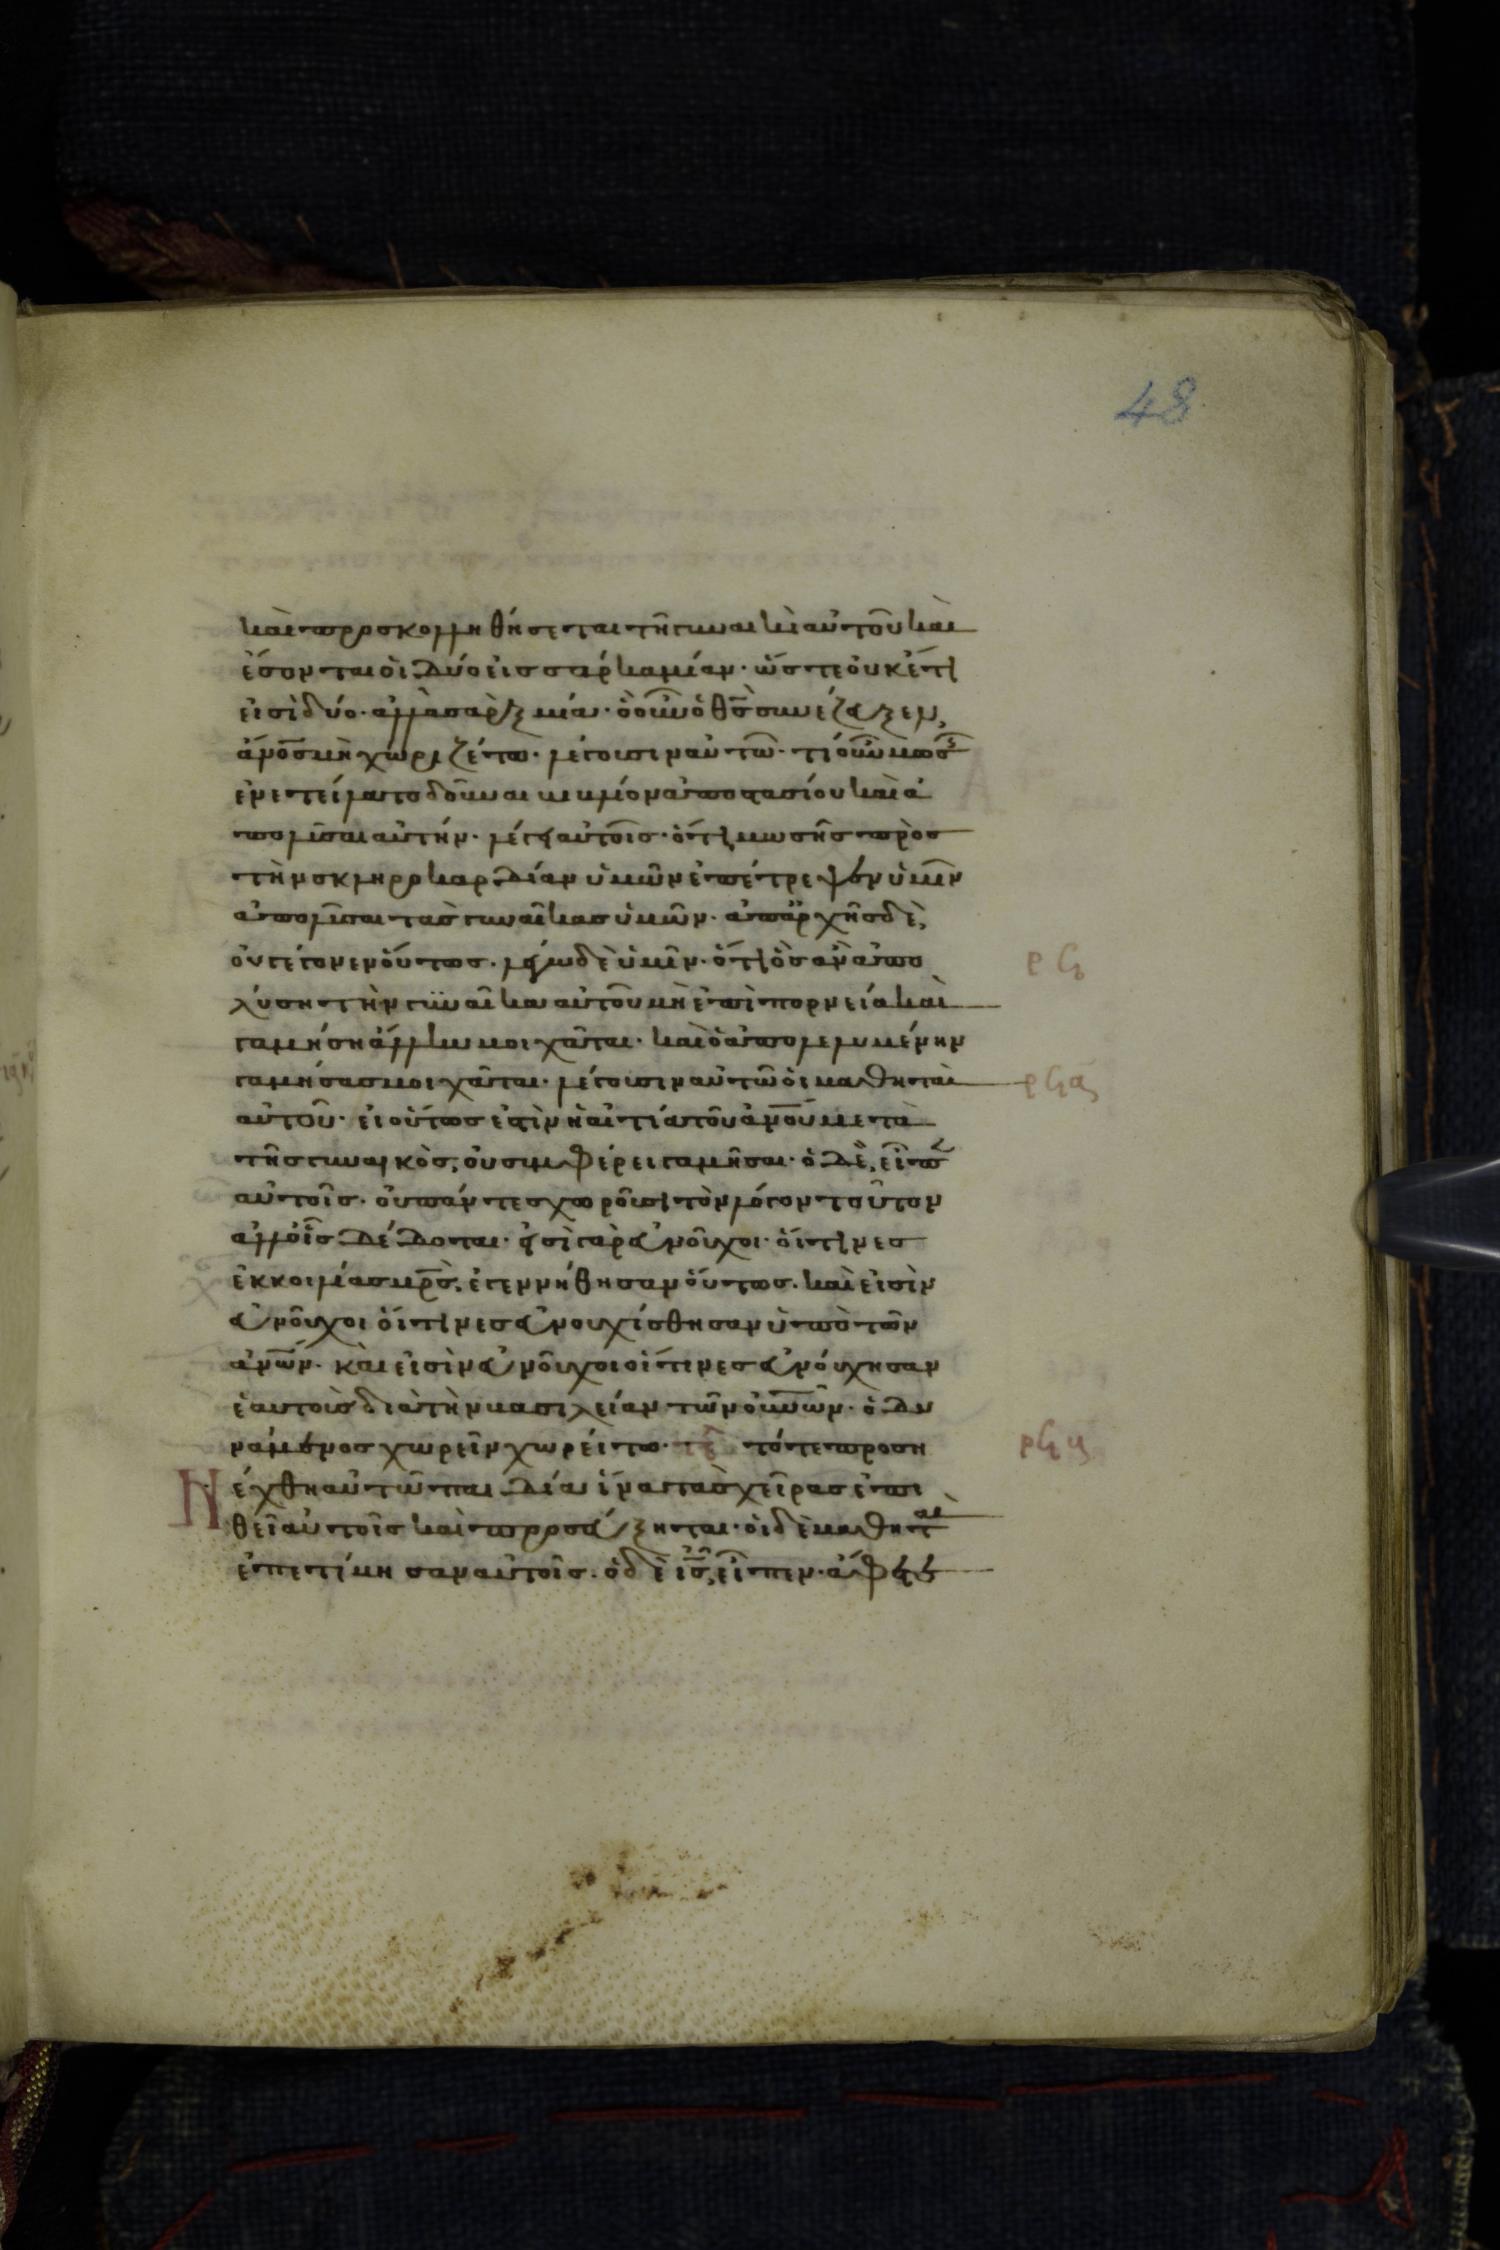 48
καὶ προσκολληθήσεται τῆ γυναικὶ αὐτοῦ καὶ
ἔσονται οἱ δύο εἰς σάρκα μίαν· ὥστε οὐκέτι
εἰσὶ δύο· ἀλλὰ σὰρξ μία· ὃ οὖν ὁ θς συνέζευξεν,
ἄνος μὴ χωριζέτω· λέγουσιν αὐτῶ· τί οὖν μωσῆς
ἐνετείλατο δοῦναι βιβλίον ἀποστασίου καὶ ἀ
πολῦσαι αὐτήν· λέγει αὐτοῖς· ὅτι μωσῆς πρὸς
τὴν σκληροκαρδίαν ὑμῶν ἐπέτρεψεν ὑμῖν
ἀπολῦσαι τὰς γυναῖκας ὑμῶν· ἀπαρχῆς δὲ,
οὐ γέγονεν οὕτως· λέγω δὲ ὑμῖν· ὅτι ὃς ἂν ἀπο
λύση τὴν γυναῖκα αὐτοῦ μὴ ἐπὶ πορνεία καὶ
γαμήση ἄλλην μοιχᾶται· καὶ ὁ ἀπολελυμένην
γαμήσας μοιχᾶται· λέγουσιν αὐτῶ οἱ μαθηταὶ
αὐτοῦ· εἰ οὕτως ἐστὶν ἡ αἰτία τοῦ ἀνου μετὰ
τῆς γυναικὸς, οὐ συμφέρει γαμῆσαι· ὁ δὲ, εἶπεν
αὐτοῖς· οὐ πάντες χωροῦσι τὸν λόγον τοῦτον
ἀλλοἷς δέδοται· εἰσὶ γὰρ εὐνοῦχοι· οἵτινες
ἐκ κοιλίας μρς, ἐγεννήθησαν οὕτως· καὶ εἰσὶν
εὐνοῦχοι οἵτινες εὐνουχίσθησαν ὑπὸ τῶν
ἀνων· καὶ εἰσὶν εὐνοῦχοι οἵτινες εὐνούχησαν
ἑαυτοὺς διὰ τὴν βασιλείαν τῶν οὐνων· ὁ δυ
νάμενος χωρεῖν χωρείτω· τε τότε προση
έχθη αὐτῶ παιδία ἵνα τὰς χεῖρας ἐπι
θεῖ αὐτοῖς καὶ προσεύξηται· οἱ δὲ μαθηταὶ
ἐπετίμησαν αὐτοῖς· ὁ δὲ ις, εἶπεν· ἄφετε
ρϟ
ρϟα
ρϟβ